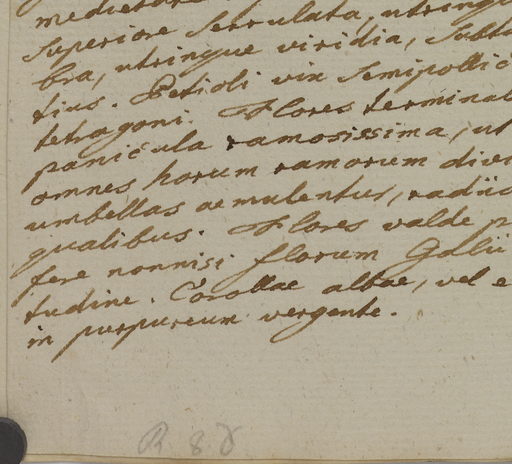 medietate
superiore serrulata, utrinqu
bra, utrinque viridia, subtu
tius. Petioli vix semipollic
tetragoni. Flores terminal
panicula ramosissima, ut
omnes horum ramorum divi
umbellas aemulentur, radiis
qualibus. Flores valde p
fere nonnisi florum Galii
tudine. Corollae albae, vel e
in purpureum vergente.
R. 8